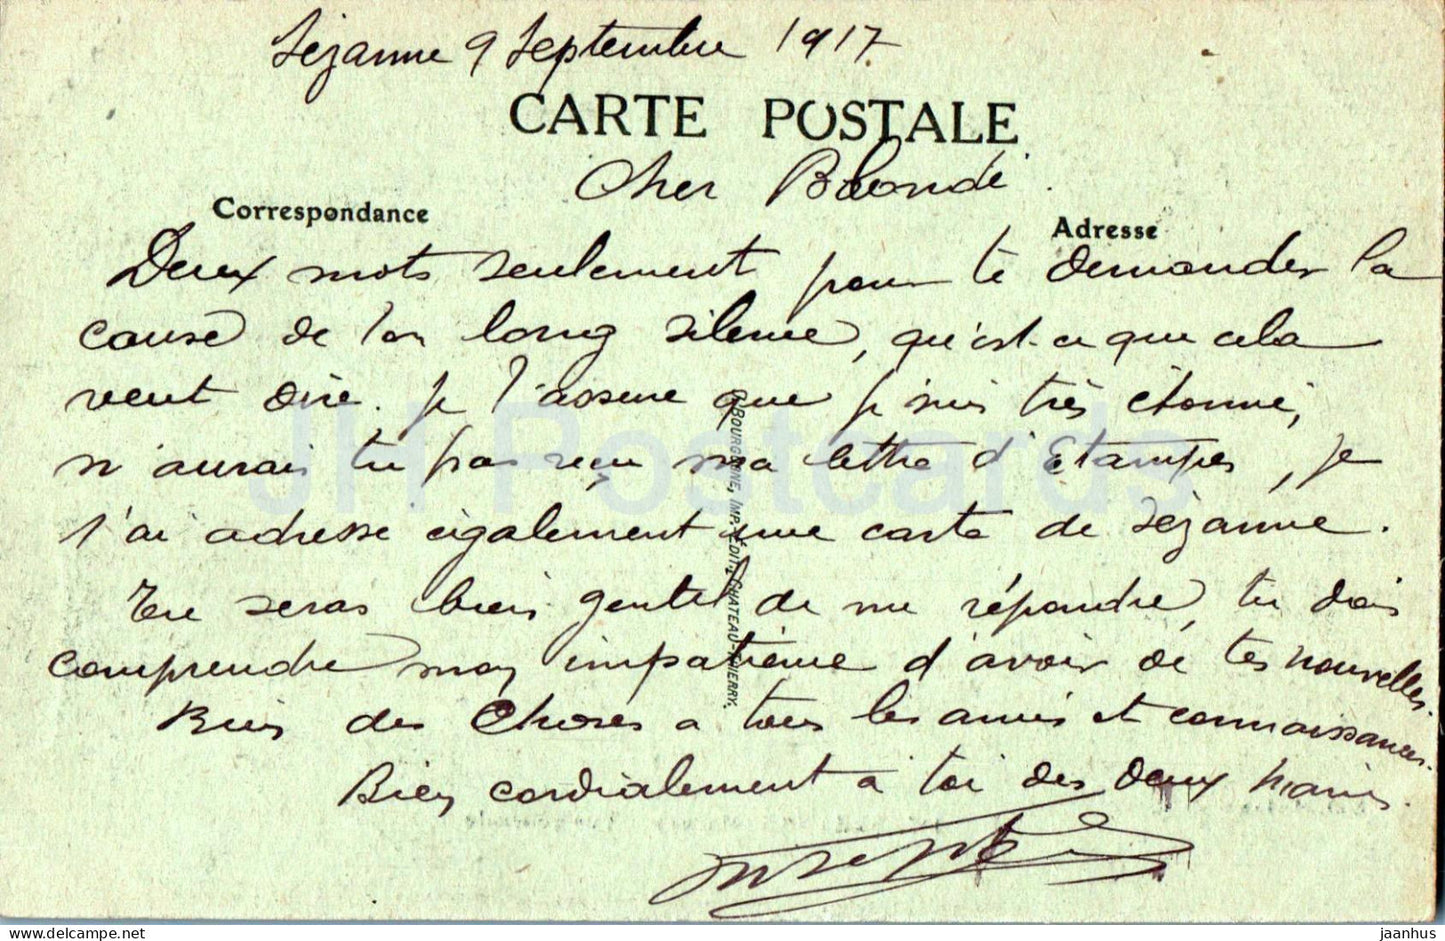 Sézanne 9 Septembre 1917
CARTE POSTALE
Cher Blondé.
Correspondance
Adresse
Deux mots seulement pour te demander la
cause de ton long silence, qu'est-ce que cela
veut dire. Je t'assure que je suis très étonné,
n'aurais tu pas reçu ma lettre d'Etampes, je
t'ai adressé également une carte de Sézanne.
Tu seras bien gentil de me répondre, tu dois
comprendre mon impatience d'avoir de tes nouvelles.
Bien des choses a tous les amis et connaissances.
Bien cordialement a toi des deux mains.
BOURGOGNE, IMP. EDIT. CHATEAU-THIERRY.
JH Postcards
delcampe.net
jaanhus